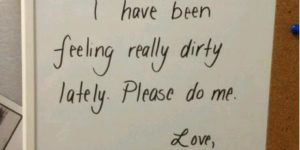 I have been
feeling really dirty
lately. Please do me.
Love,